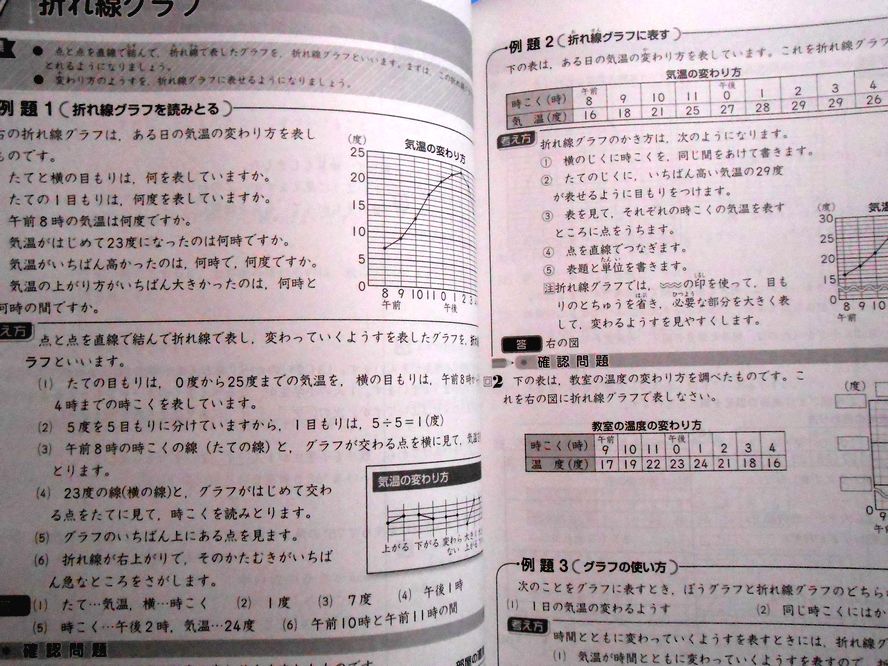 折れ線グラフ
● 点と点を直線で結んで，折れ線で表したグラフを，折れ線グラフといいます。まずは，この折れ
とれるようになりましょう。
● 変わり方のようすを，折れ線グラフに表せるようになりましょう。
例題1（折れ線グラフを読みとる）
右の折れ線グラフは，ある日の気温の変わり方を表し
ものです。
たてと横の目もりは，何を表していますか。
たての1目もりは，何度を表していますか。
午前8時の気温は何度ですか。
気温がはじめて23度になったのは何時ですか。
気温がいちばん高かったのは，何時で，何度ですか。
気温の上がり方がいちばん大きかったのは，何時と
何時の間ですか。
(度) 気温の変わり方
25
20
15
10
5
0
8 9 10 11 0 1 2 3
午前 午後
え方
点と点を直線で結んで折れ線で表し，変わっていくようすを表したグラフを，折れ
ラフといいます。
(1) たての目もりは，0度から25度までの気温を，横の目もりは，午前8時
4時までの時こくを表しています。
(2) 5度を5目もりに分けていますから，1目もりは，5÷5＝1(度)
(3) 午前8時の時こくの線（たての線）と，グラフが交わる点を横に見て，気温
とります。
(4) 23度の線(横の線)と，グラフがはじめて交わ
る点をたてに見て，時こくを読みとります。
(5) グラフのいちばん上にある点を見ます。
(6) 折れ線が右上がりで，そのかたむきがいちば
ん急なところをさがします。
気温の変わり方
上がる 下がる 変わら 大きく
ない 上がる
(1) たて…気温，横…時こく (2) 1度 (3) 7度 (4) 午後1時
(5) 時こく…午後2時，気温…24度 (6) 午前10時と午前11時の間
● 確認問題
例題2（折れ線グラフに表す）
下の表は，ある日の気温の変わり方を表しています。これを折れ線グラフ
気温の変わり方
午前 午後
時こく(時) 8 9 10 11 0 1 2 3 4
気温(度) 16 18 21 25 27 28 29 29 26
考え方 折れ線グラフのかき方は，次のようになります。
① 横のじくに時こくを，同じ間をあけて書きます。
② たてのじくに，いちばん高い気温の29度
が表せるように目もりをつけます。
③ 表を見て，それぞれの時こくの気温を表す
ところに点をうちます。
④ 点を直線でつなぎます。
⑤ 表題と単位を書きます。
注 折れ線グラフでは，〰の印を使って，目も
りのとちゅうを省き，必要な部分を大きく表
して，変わるようすを見やすくします。
(度) 気温
30
25
20
15
0
8 9 10
午前
答 右の図
● 確認問題
2 下の表は，教室の温度の変わり方を調べたものです。こ
れを右の図に折れ線グラフで表しなさい。
教室の温度の変わり方
午前 午後
時こく(時) 9 10 11 0 1 2 3 4
温度(度) 17 19 22 23 24 21 18 16
(度)
0
9
例題3（グラフの使い方）
次のことをグラフに表すとき，ぼうグラフと折れ線グラフのどちら
(1) 1日の気温の変わるようす (2) 同じ時こくには
考え方 時間とともに変わっていくようすを表すときには，折れ線
(1) 気温が時間とともに変わっていくようすを表すので